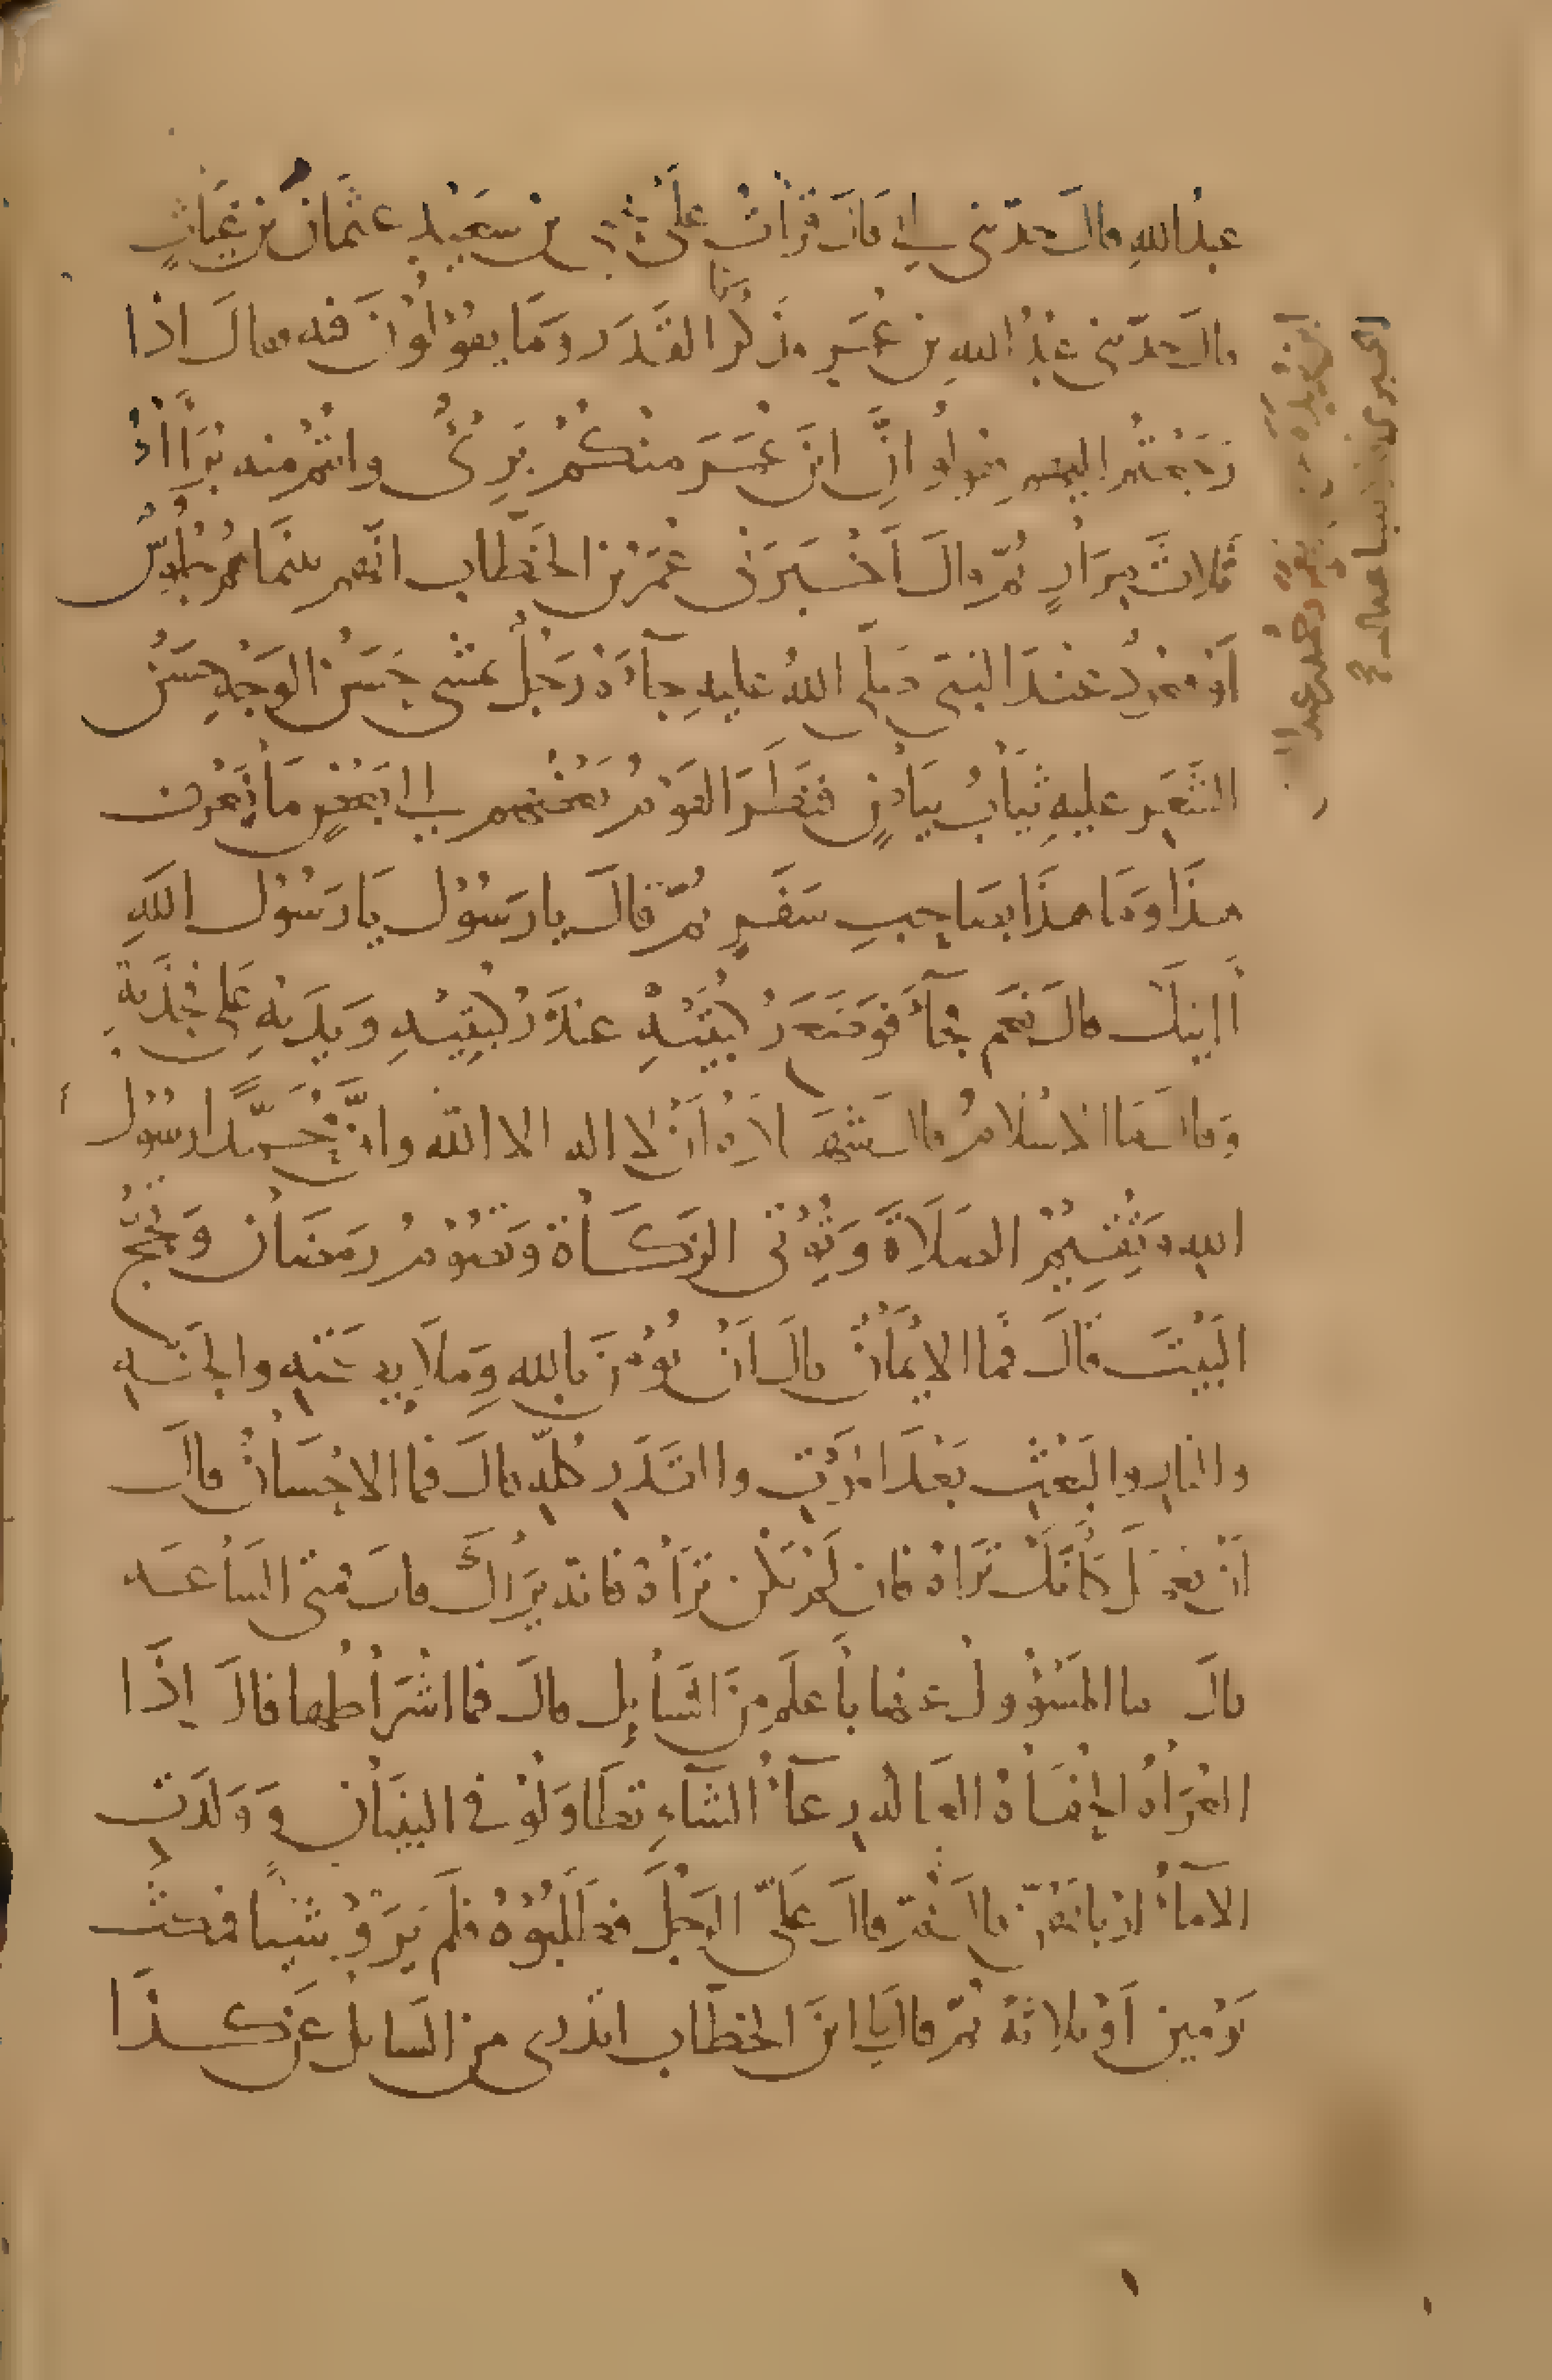 عبدُ اللهِ قال حدّثنى ابى قالَ قرأتُ على يحيى بن سعيدٍ عثمانُ بن غياثٍ
قالَ حدّثنى عبدُ اللهِ بن عُمَر فذكرنا القَدَرَ ومَا يقوُلوُنَ فيه فقالَ اذا
رَجعْتُم اليهم فقولوا انّ ابنَ عُمَرَ منكُمْ بَرِىٌ وانتم منه بُرَأاءُ
ثلاثَ مِرَارٍ ثمّ قالَ اَخْبَرَنى عُمَرُ بن الخطّاب انّهم بينمَا هُم جُلوُسٌ
اَوْ قعُودٌ عنْدَ النبىّ صلّى اللهُ عليهِ جآءَهُ رَجُلٌ يمشى حَسَنُ الوَجْهِ حسَنُ
الشَّعَرِ عليهِ ثيَابُ بيَاضٍ فنَظَرَ القَوْمُ بَعْضُهم الى بَعْضٍ مَا نَعْرِف
هذَا وَمَا هذَا بصَاحِبِ سَفَرٍ ثمّ قالَ يا رسُوْل يَا رَسُوْل اللهِ
أاتيكَ قالَ نعَم فجآءَ فوضَعَ رُكبتَيْهِ عندَ رُكبتيْهِ وَيدَيْهِ عَلى فخْذَيْهِ
وقالَ ما الاسْلامُ قال شَهَادَةُ اَنْ لا اله الا الله وانّ مُحَمّدًا رسُوْل
اللهِ وَتُقِيْمُ الصَلَاةَ وَتُؤْتى الزكَاةَ وتصُوْمُ رمَضَان وَتَحُجُّ
البَيْتَ قالَ فمَا الايْمَانُ قالَ اَنْ تُؤْمِنَ بالله وَمَلَايكَتِهِ والجَنّهِ
والنارِ والبَعْثِ بَعْدَ الموْتِ والقَدَرِ كُلّهِ قالَ فما الاحْسَانُ قالَ
اَنْ تعْمَلَ كَأنّكَ تَرَاهُ فان لَم تكُن تَرَاهُ فانّه يَرَاكَ قالَ فمتى السَاعَه
قالَ ما المَسْؤُولُ عنها بأعلَم مِنَ السَايِل قالَ فما اشْرَاطُها قالَ إِذَا
العُرَاةُ الحُفَاةُ العَالهُ رعَآءُ الشَاءِ تطَاوَلُوْ فى البنيَانِ وَوَلَدَتِ
الامَآءُ ارْبابَهُنّ قالَ ثمّ قالَ عَلىّ الرَجُلَ فطَلَبُوْهُ فلَم يَرَوْ شيْئًا فمَكثَ
يَوْمين اَوْ ثلاثةً ثمّ قالَ يا ابنَ الخطّاب اتدرى من السايلُ عَن كذَا